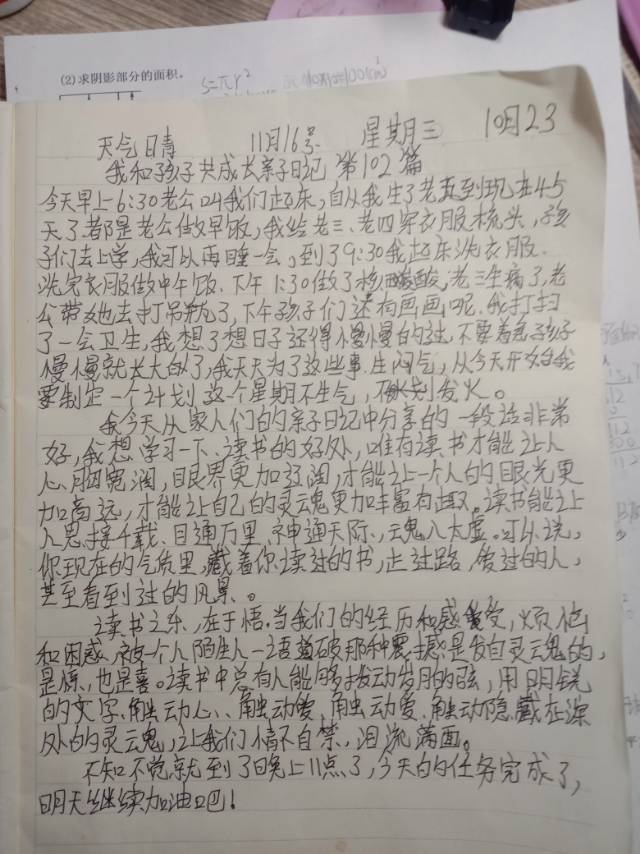 (2)求阴影部分的面积。
S=πr²
天气晴 11月16号 星期三 10月23
我和孩子共成长亲子日记 第102篇
今天早上6:30老公叫我们起床,自从我生了老五到现在45
天了都是老公做早饭,我给老三、老四穿衣服梳头,孩
子们去上学,我可以再睡一会,到了9:30我起床洗衣服.
洗完衣服做中午饭.下午1:30做了核酸,老三生病了,老
公带她去打吊瓶了,下午孩子们还有画画呢.我打扫
了一会卫生,我想了想日子还得慢慢的过,不要着急孩子
慢慢就长大的了,我天天为了这些事生闷气,从今天开始我
要制定一个计划,这个星期不生气,不发火。
我今天从家人们的亲子日记中分享的一段话非常
好,我想学习一下、读书的好处,唯有读书才能让人
心胸宽润,眼界更加弦润,才能让一个人的眼光更
加高远,才能让自己的灵魂更加丰富有趣。读书能让
人思接千载、目通万里、神通天际、云鬼八太虚。可以说,
你现在的气质里,藏着你读过的书,走过路,爱过的人,
甚至看到过的风景。
读书之乐,在于悟.当我们的经历和感受,烦恼
和困惑、被一个人陌生人一语道破那种震撼是发自灵魂的,
是惊,也是喜。读书中总有人能够拨动岁月的弦,用明锐
的文字、触动心、触动爱、触动爱、触动隐藏在深
处的的灵魂,让我们情不自禁,泪流满面。
不知不觉就到了晚上11点了,今天的任务完成了,
明天继续加油吧!